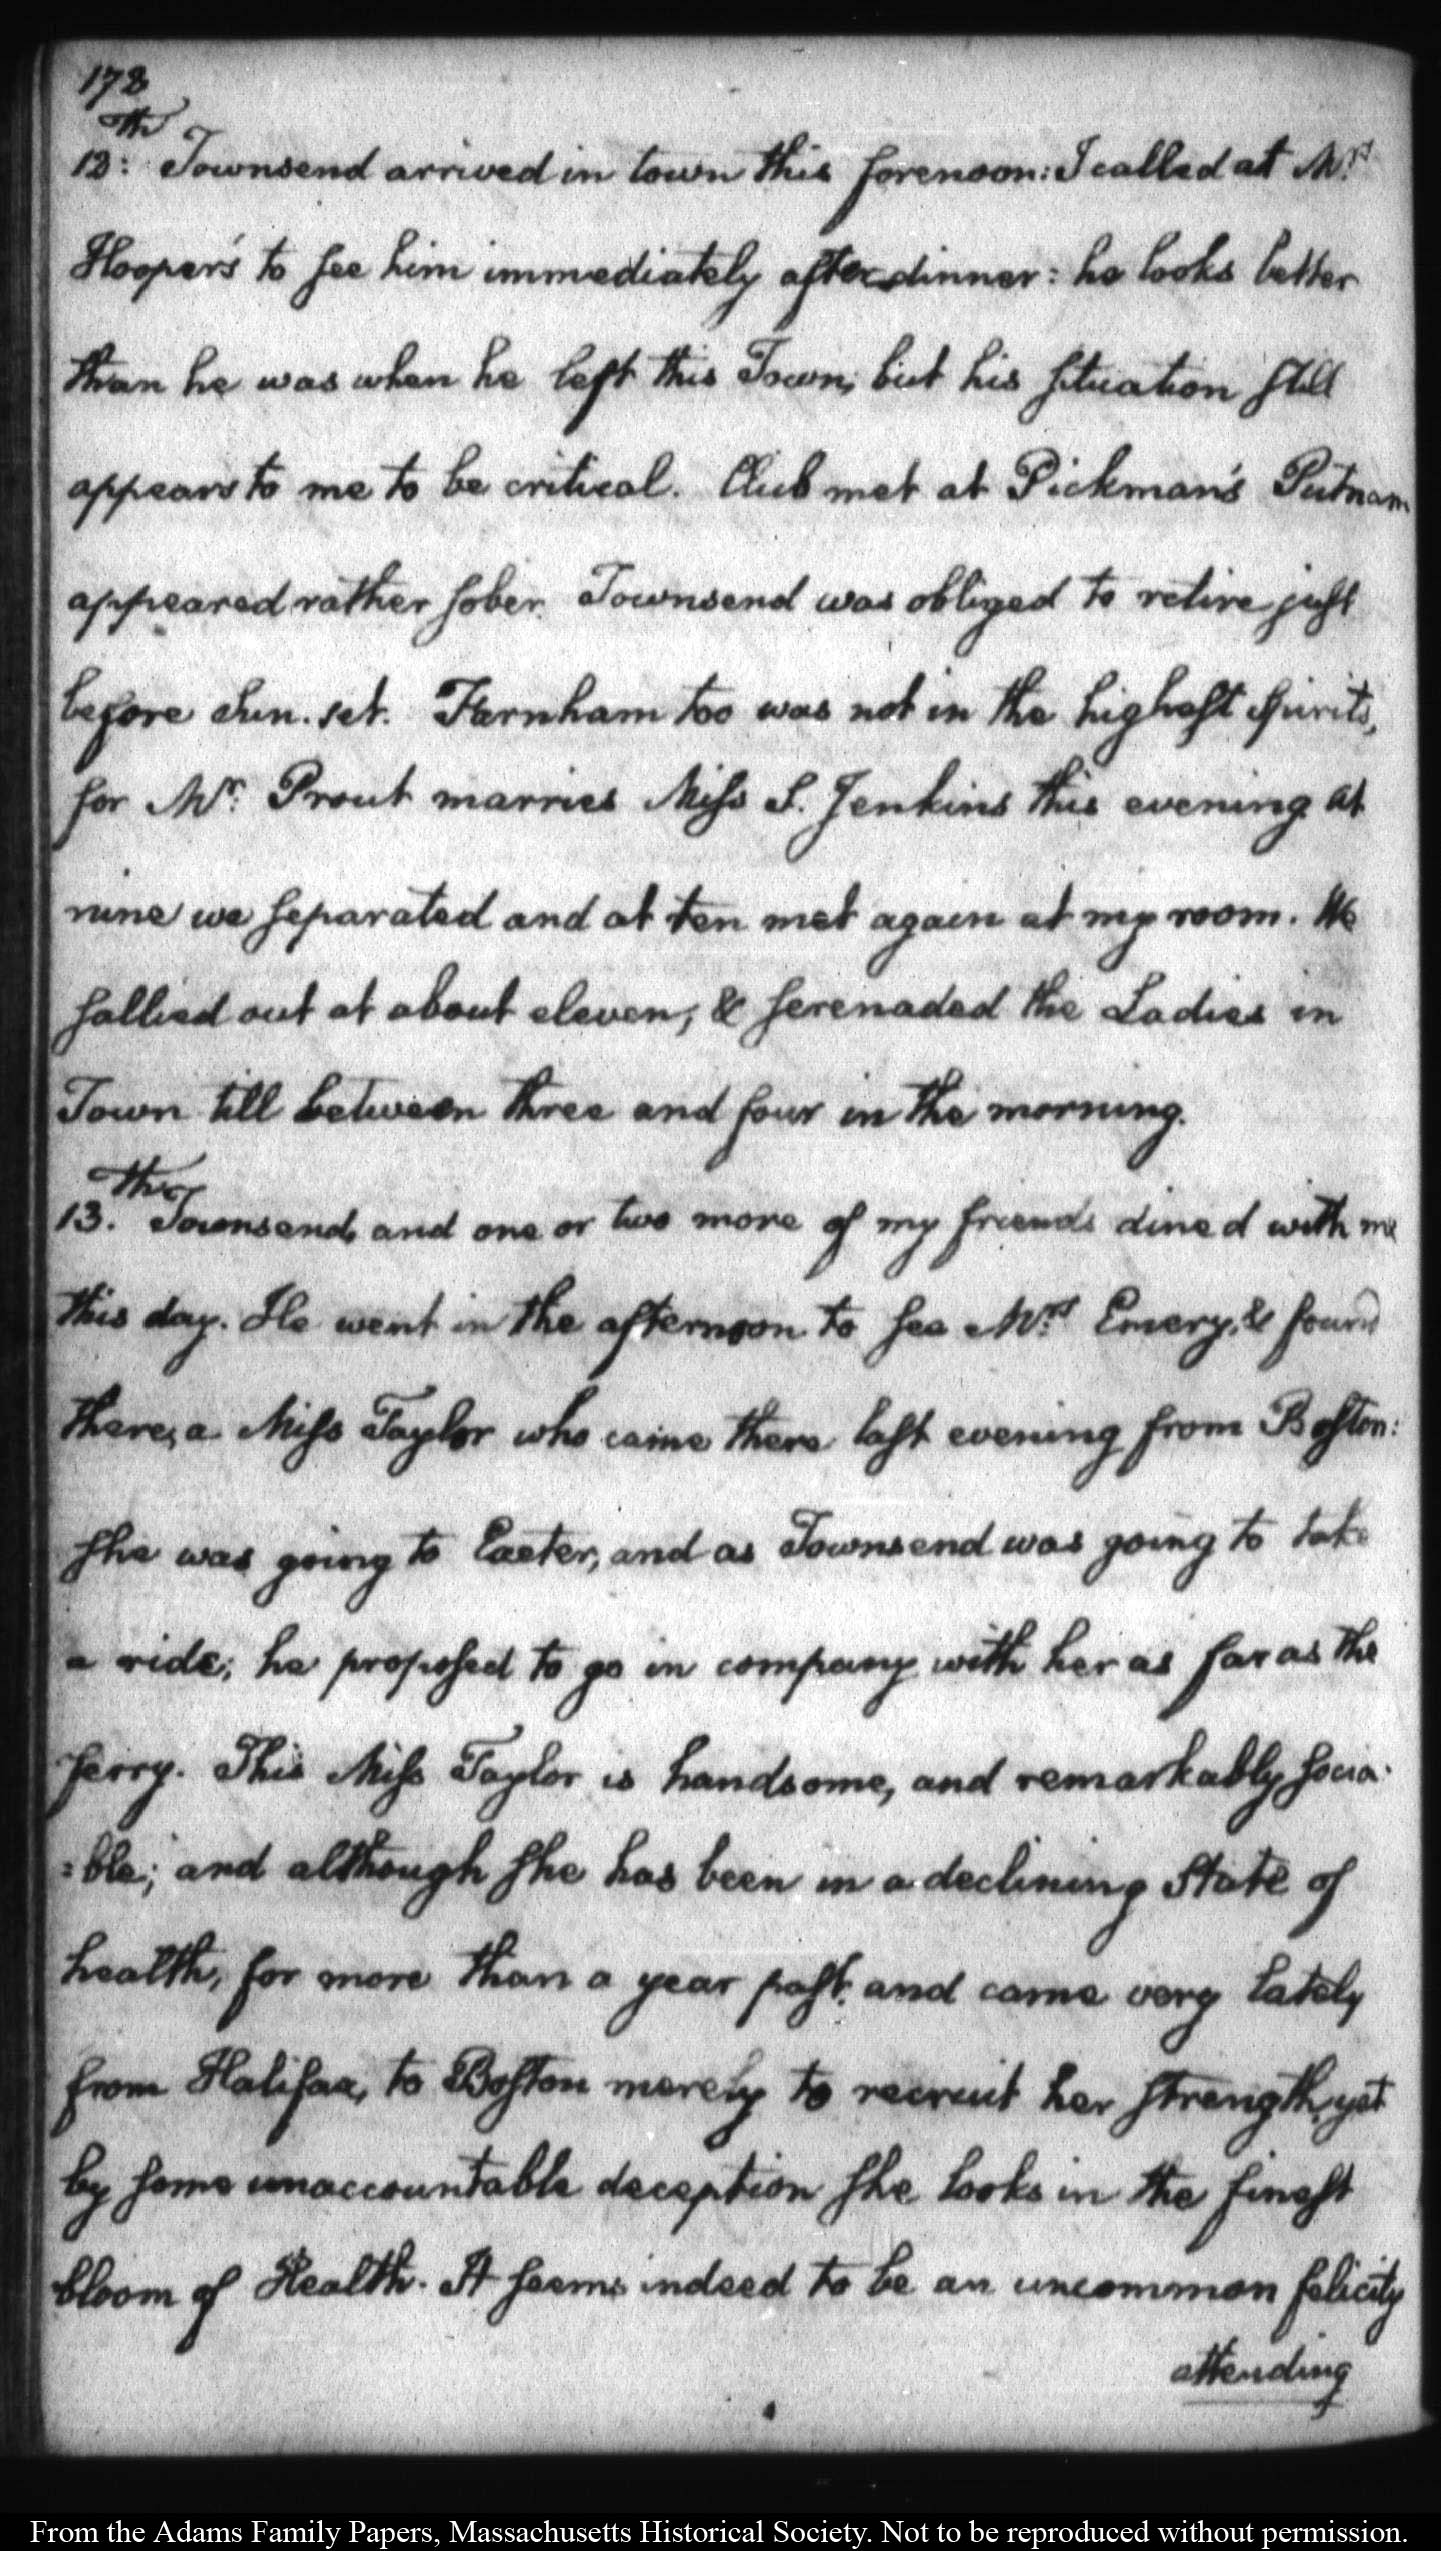 178
th
12: Townsend arrived in town this forenoon: I called at Mrs
Hooper's to see him immediately after dinner: he looks better
than he was when he left this Town; but his situation still
appears to me to be critical. Club met at Pickman's Putnam
appeared rather sober. Townsend was obliged to retire just
before Sun. set. Farnham too was not in the highest spirits,
for Mr: Prout marries Miss S. Jenkins this evening. At
nine we separated and at ten met again at my room. We
sallied out at about eleven, & serenaded the Ladies in
Town till between three and four in the morning.
th
13. Townsend, and one or two more of my friends dined with me
this day. He went in the afternoon to see Mrs Emery, & found
there, a Miss Taylor who came there last evening from Boston:
she was going to Exeter, and as Townsend was going to take
a ride; he proposed to go in company with her as far as the
ferry. This Miss Taylor is handsome, and remarkably socia-
=ble; and although she has been in a declining State of
health, for more than a year past, and came very lately
from Halifax, to Boston merely to recruit her strength, yet
by some unaccountable deception she looks in the finest
bloom of Health. It seems indeed to be an uncommon felicity
attending
From the Adams Family Papers, Massachusetts Historical Society. Not to be reproduced without permission.